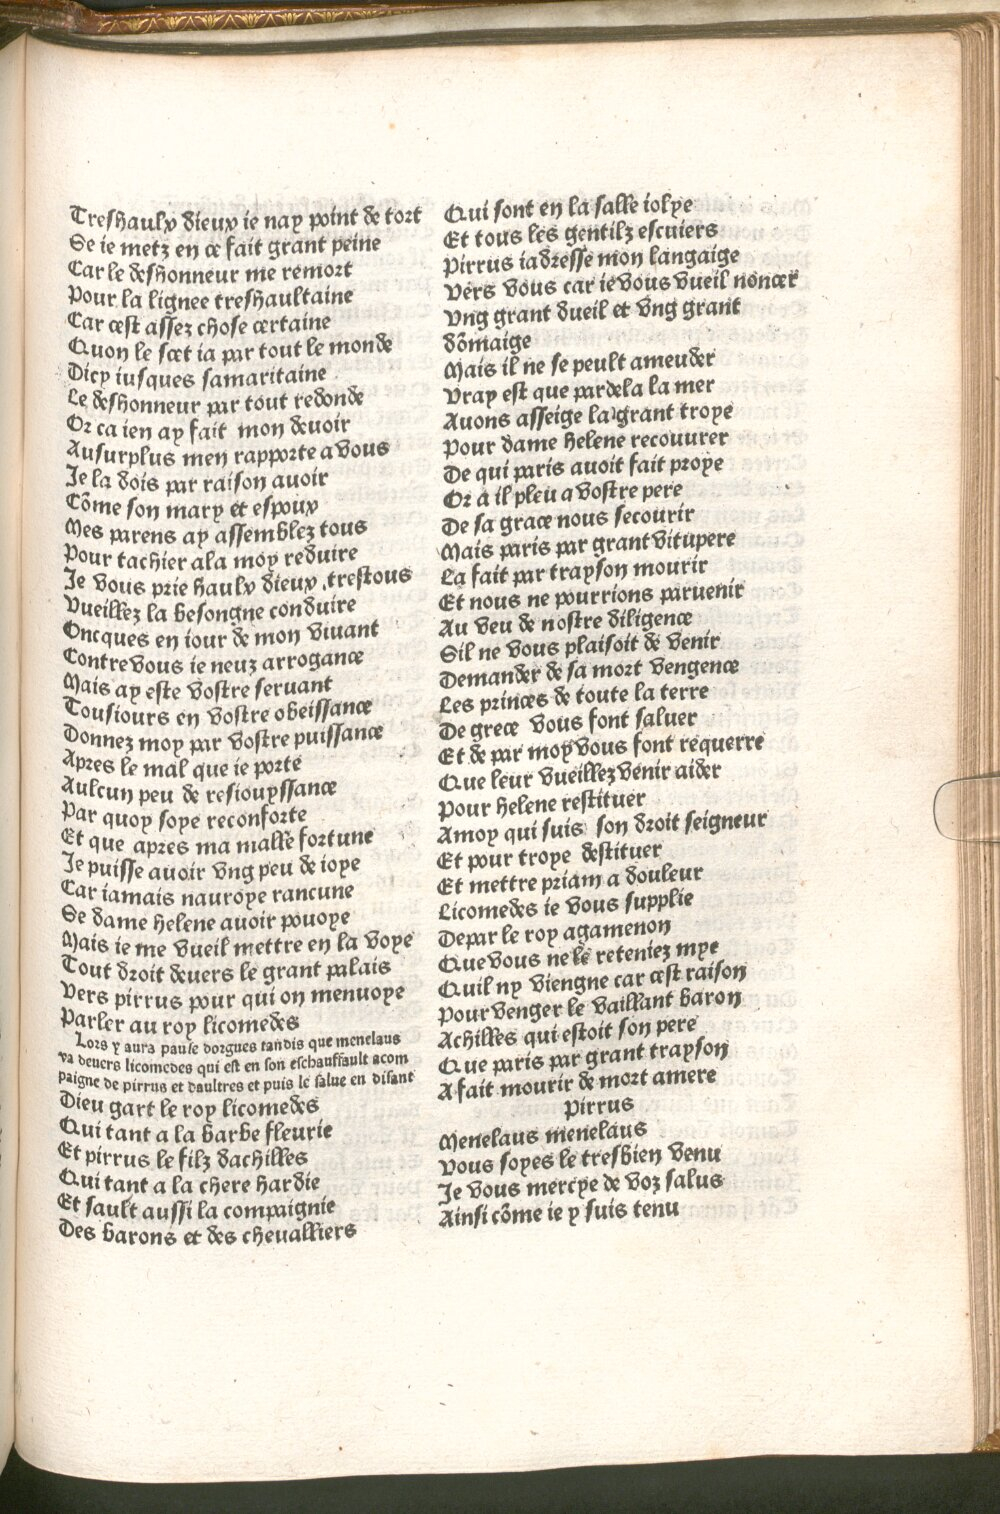 Treshaulx dieux ie nay point de tort
Se ie metz en ce fait grant peine
Car le deshonneur me remort
Pour la lignee treshaultaine
Car cest assez chose certaine
Quon le scet ia par tout le monde
Dicy iusques samaritaine
Le deshonneur par tout redonde
Or ca ien ay fait mon devoir
Ausurplus men rapporte a vous
Je la dois par raison avoir
Cõme son mary et espoux
Mes parens ay assemblez tous
Pour tachier ala moy reduire
Je vous prie haulx dieux trestous
Vueillez la besongne conduire
Oncques en iour de mon vivant
Contre vous ie neuz arrogance
Mais ay este vostre servant
Tousiours en vostre obeissance
Donnez moy par vostre puissance
Apres le mal que ie porte
Aulcun peu de resiouyssance
Par quoy soye reconforte
Et que apres ma malle fortune
Je puisse avoir ung peu de ioye
Car iamais nauroye rancune
Se dame helene avoir povoye
Mais ie me vueil mettre en la voye
Tout droit devers le grant palais
Vers pirrus pour qui on menvoye
Parler au roy licomedes
Lors y aura pause dorgues tandis que menelaus
va devers licomedes qui est en son eschauffault acom
paigne de pirrus et daultres et puis le salue en disant
Dieu gart le roy licomedes
Qui tant a la barbe fleurie
Et pirrus le filz dachilles
Qui tant a la chere hardie
Et sault aussi la compaignie
Des barons et des chevalliers
Qui sont en la salle iolye
Et tous les gentilz escuiers
Pirrus iadresse mon langaige
Vers vous car ie vous vueil noncer
Ung grant dueil et ung grant
dõmaige
Mais il ne se peult ameuder
Vray est que pardela la mer
Avons asseige la grant troye
Pour dame helene recouvrer
De qui paris avoit fait proye
Or a il pleu a vostre pere
De sa grace nous secourir
Mais paris par grant vitupere
La fait par trayson mourir
Et nous ne pourrions parvenir
Au veu de nostre diligence
Sil ne vous plaisoit de venir
Demander de sa mort vengence
Les princes de toute la terre
De grece vous font saluer
Et de par moy vous font requerre
Que leur vueillez venir aider
Pour helene restituer
Amoy qui suis son droit seigneur
Et pour troye destituer
Et mettre priam a douleur
Licomedes ie vous supplie
Depar le roy agamenon
Que vous ne le reteniez mye
Quil ny viengne car cest raison
Pour venger le vaillant baron
Achilles qui estoit son pere
Que paris par grant trayson
A fait mourir de mort amere
Pirrus
Menelaus menelaus
Vous soyes le tresbien venu
Je vous mercye de voz salus
Ainsi cõme ie y suis tenu